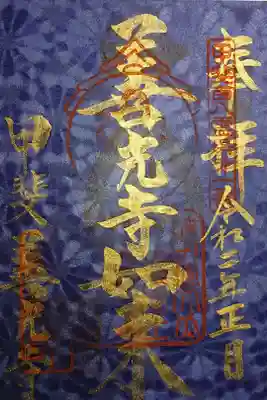 奉拝
令和二年正月
善光寺如来
甲斐善光寺